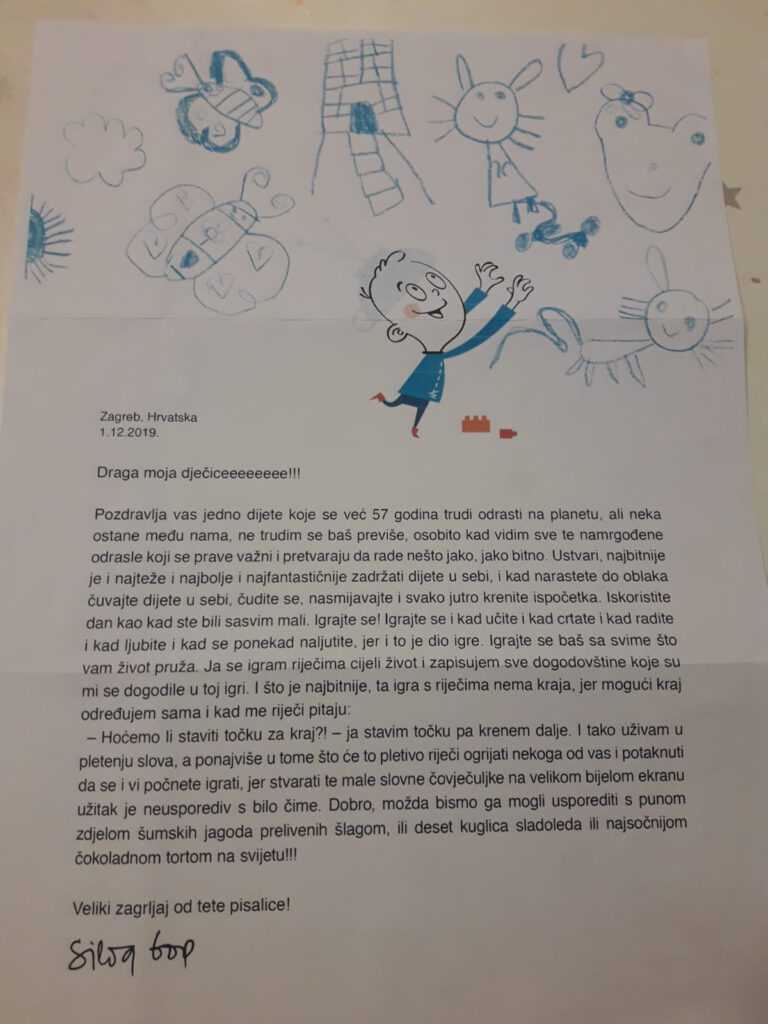 Zagreb, Hrvatska
1.12.2019.
Draga moja dječiceeeeeeee!!!
Pozdravlja vas jedno dijete koje se već 57 godina trudi odrasti na planetu, ali neka
ostane među nama, ne trudim se baš previše, osobito kad vidim sve te namrgođene
odrasle koji se prave važni i pretvaraju da rade nešto jako, jako bitno. Ustvari, najbitnije
je i najteže i najbolje i najfantastičnije zadržati dijete u sebi, i kad narastete do oblaka
čuvajte dijete u sebi, čudite se, nasmijavajte i svako jutro krenite ispočetka. Iskoristite
dan kao kad ste bili sasvim mali. Igrajte se! Igrajte se i kad učite i kad crtate i kad radite
i kad ljubite i kad se ponekad naljutite, jer i to je dio igre. Igrajte se baš sa svime što
vam život pruža. Ja se igram riječima cijeli život i zapisujem sve dogodovštine koje su
mi se dogodile u toj igri. I što je najbitnije, ta igra s riječima nema kraja, jer mogući kraj
određujem sama i kad me riječi pitaju:
– Hoćemo li staviti točku za kraj?! – ja stavim točku pa krenem dalje. I tako uživam u
pletenju slova, a ponajviše u tome što će to pletivo riječi ogrijati nekoga od vas i potaknuti
da se i vi počnete igrati, jer stvarati te male slovne čovječuljke na velikom bijelom ekranu
užitak je neusporediv s bilo čime. Dobro, možda bismo ga mogli usporediti s punom
zdjelom šumskih jagoda prelivenih šlagom, ili deset kuglica sladoleda ili najsočnijom
čokoladnom tortom na svijetu!!!
Veliki zagrljaj od tete pisalice!